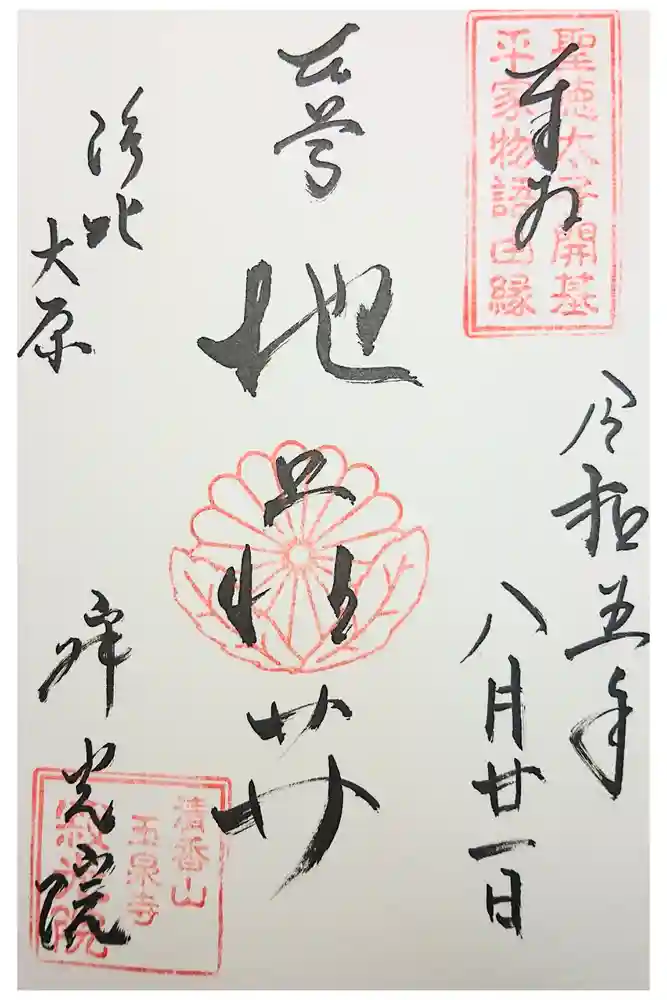 奉拝
聖徳太子開基
平家物語由縁
令和五年
八月廿一日
本尊
地蔵𦬇
洛北
大原
寂光院
清香山
玉泉寺
寂光院